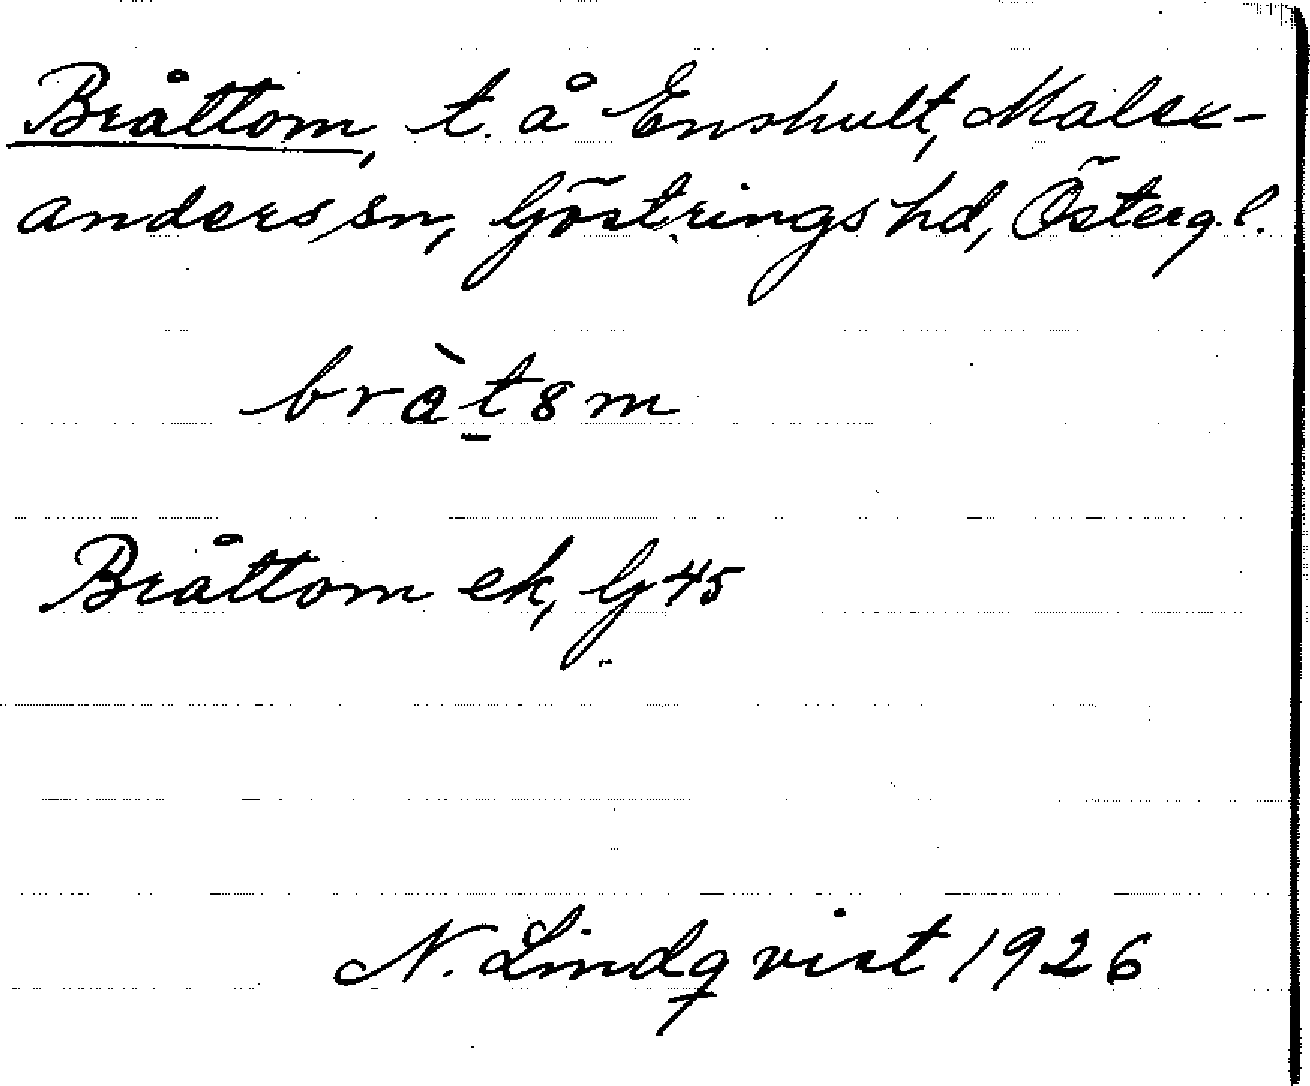 Bråttom, t. å Enshult, Malex-
anders sn, Göstrings hd, Österg.l.
bràt8m
Bråttom ek, G 45
N. Lindqvist 1926